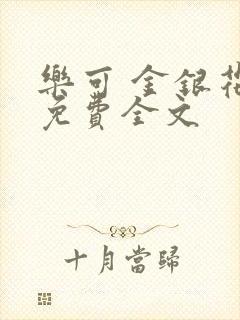 樂可 金銀花
免費全文
十月當歸